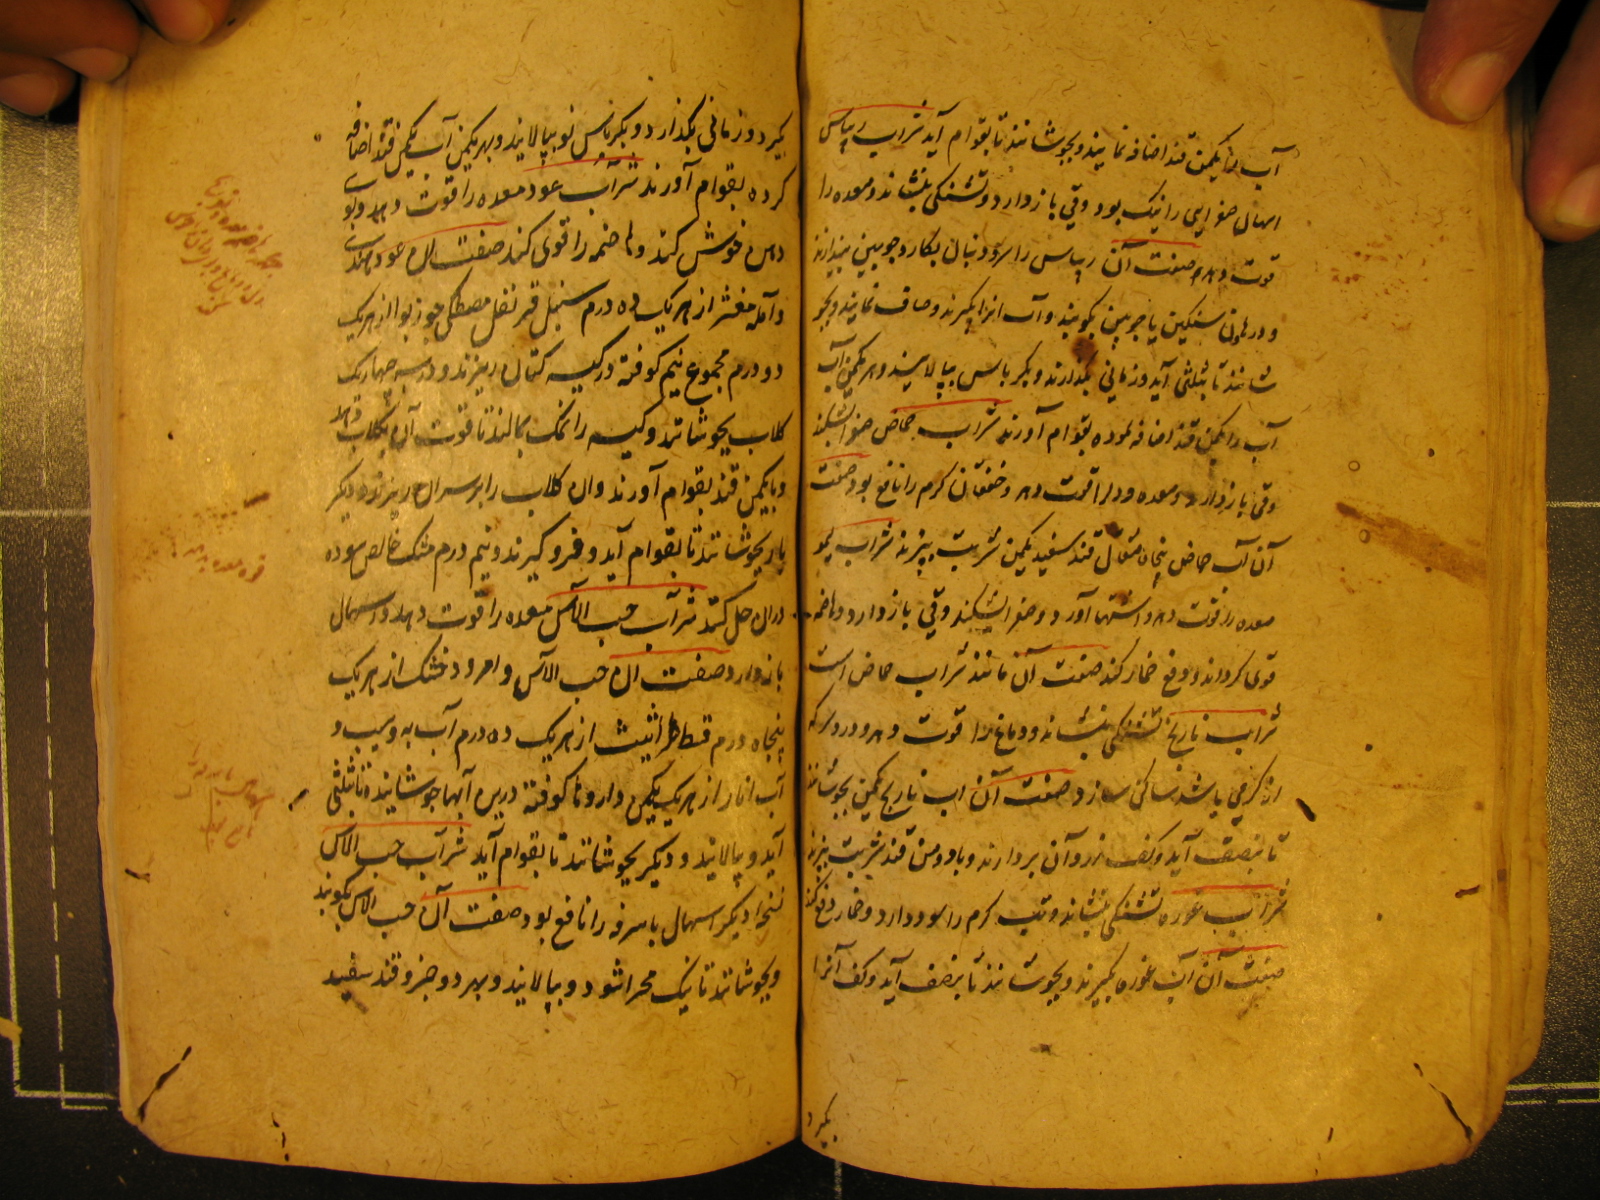 آب را یکمن قند اضافه نمایند و بجوشانند تا بقوام آید شراب ریباس
اسهال صفرایی را نیک بود و قی باز دارد و تشنکی بنشاند و معده را
قوت دهد صفت آن ریباس را سر و دنبال بکارد چوبین بیندازند
و در هاون سنکین یا چوبین بکوبند و آب انرا بکیرند و صاف نمایند و بجو
شانند تا بثلثی آید و زمانی بگذارند و بکرباس بپالایند و هر یکمن آب
آب را یکمن قند اضافه نموده بقوام آورند شراب حماض صفرا بشکند
و قی باز دارد و معده و دلرا قوت دهد و خفقان کرم را نافع بود صفت
آن آب حماض پنجاه مثقال قند سفید یکمن شربت بپزند شراب لیمو
معده را قوت دهد و اشتها آورد و صفرا بشکند و قی باز دارد و هاضمه
قوی کرداند و دفع خمار کند صفت آن مانند شراب حماض است
شراب نارنج تشنکی بنشاند و دماغ را قوت دهد و درد سر که
از کرمی باشد ساکن سازد صفت آن آب نارنج یکمن بجوشانند
تا بنصف آید و کف از روی آن بردارند و با دو من قند شربت بپزند
شراب غوره تشنکی بنشاند و تب کرم را سود دارد و خمار دفع کند
صفت آن آب غوره بکیرند و بجوشانند تا بنصف آید و کف آنرا
بکیرد
بکیرد و زمانی بکذارد و بکرباس نو بپالایند و بهر یکمن آب یکمن قند اضافه
کرده بقوام آورند شراب عود معده را قوت دهد و بوی
دهن خوش کند و هاضمه را قوی کند صفت آن عود هندی
و آمله مقشر از هر یک ده درم سنبل قرنفل مصطکی جوز بوا از هر یک
دو درم مجموع نیم کوفته در کیسه کتان ریزند و در سه چهار یک
کلاب بجوشانند و کیسه را نمک بمالند تا قوت آن بکلاب دهد
و با یکمن قند بقوام آورند و آن کلاب را بر سر آن ریزند و دیکر
بار بجوشانند تا بقوام آید و فرو کیرند و نیم درم مشک خالص سوده
در آن حل کنند شراب حب الآس معده را قوت دهد و اسهال
باز دارد صفت آن حب الآس و امرود خشک از هر یک
پنجاه درم قسط طراثیث از هر یک ده درم آب به و سیب و
آب انار از هر یک یکمن داروها کوفته درین آبها جوشانیده تا بثلثی
آید و بپالایند و دیکر بجوشانند تا بقوام آید شراب حب الآس
نسخه دیکر اسهال با سرفه را نافع بود صفت آن حب الآس بکوبند
و بجوشانند تا نیک مهرا شود و بپالایند و بهر دو جزو قند سفید